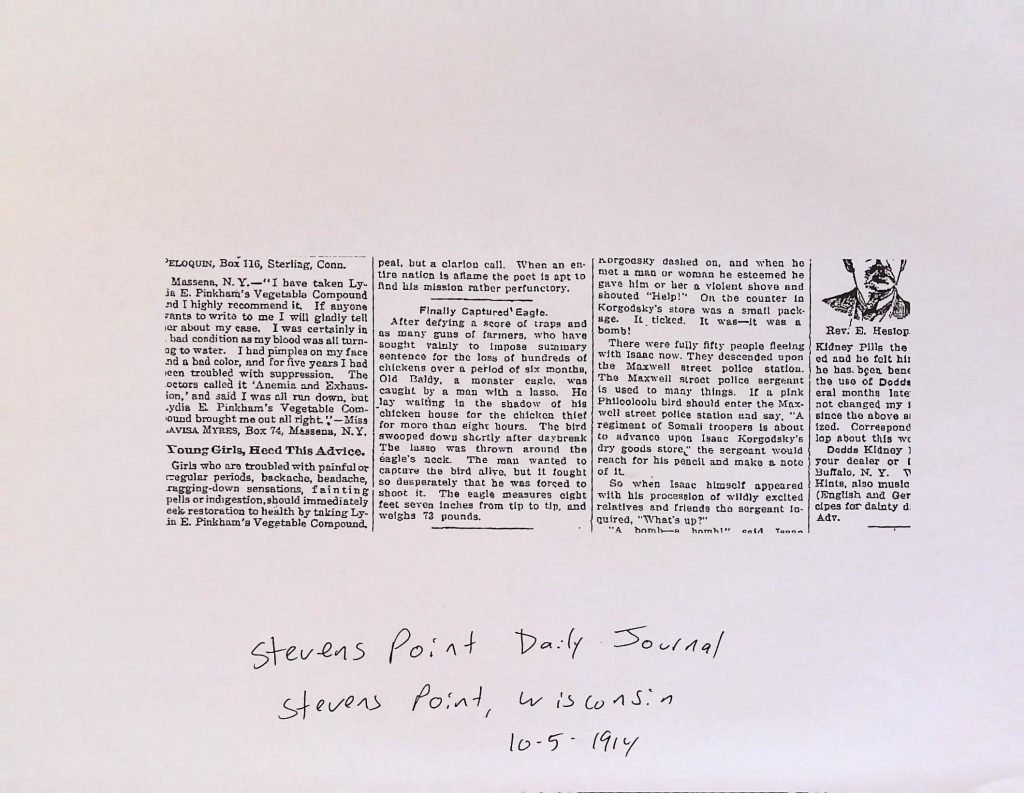 PELOQUIN, Box 116, Sterling, Conn.
Massena, N. Y.—"I have taken Ly-
ia E. Pinkham's Vegetable Compound
nd I highly recommend it. If anyone
vants to write to me I will gladly tell
er about my case. I was certainly in
bad condition as my blood was all turn-
ng to water. I had pimples on my face
nd a bad color, and for five years I had
een troubled with suppression. The
octors called it 'Anemia and Exhaus-
ion,' and said I was all run down, but
ydia E. Pinkham's Vegetable Com-
ound brought me out all right."—Miss
AVISA MYRES, Box 74, Massena, N.Y.
Young Girls, Heed This Advice.
Girls who are troubled with painful or
rregular periods, backache, headache,
ragging-down sensations, fainting
pells or indigestion, should immediately
eek restoration to health by taking Ly-
ia E. Pinkham's Vegetable Compound.
peal, but a clarion call. When an en-
tire nation is aflame the poet is apt to
find his mission rather perfunctory.
Finally Captured Eagle.
After defying a score of traps and
as many guns of farmers, who have
sought vainly to impose summary
sentence for the loss of hundreds of
chickens over a period of six months,
Old Baldy, a monster eagle, was
caught by a man with a lasso. He
lay waiting in the shadow of his
chicken house for the chicken thief
for more than eight hours. The bird
swooped down shortly after daybreak
The lasso was thrown around the
eagle's neck. The man wanted to
capture the bird alive, but it fought
so desperately that he was forced to
shoot it. The eagle measures eight
feet seven inches from tip to tip, and
weighs 73 pounds.
Korgodsky dashed on, and when he
met a man or woman he esteemed he
gave him or her a violent shove and
shouted "Help!" On the counter in
Korgodsky's store was a small pack-
age. It ticked. It was—it was a
bomb!
There were fully fifty people fleeing
with Isaac now. They descended upon
the Maxwell street police station.
The Maxwell street police sergeant
is used to many things. If a pink
Philooloolu bird should enter the Max-
well street police station and say, "A
regiment of Somali troopers is about
to advance upon Isaac Korgodsky's
dry goods store," the sergeant would
reach for his pencil and make a note
of it.
So when Isaac himself appeared
with his procession of wildly excited
relatives and friends the sergeant in-
quired, "What's up?"
"A bomb—a bomb!" said Isaac
Rev. E. Heslop
Kidney Pills the
ed and he felt hi
he has been bene
the use of Dodds
eral months late
not changed my
since the above s
ized. Correspond
lop about this wo
Dodds Kidney
your dealer or
Buffalo, N. Y. W
Hints, also music
(English and Ger
cipes for dainty d
Adv.
Stevens Point Daily Journal
Stevens Point, Wisconsin
10-5-1914